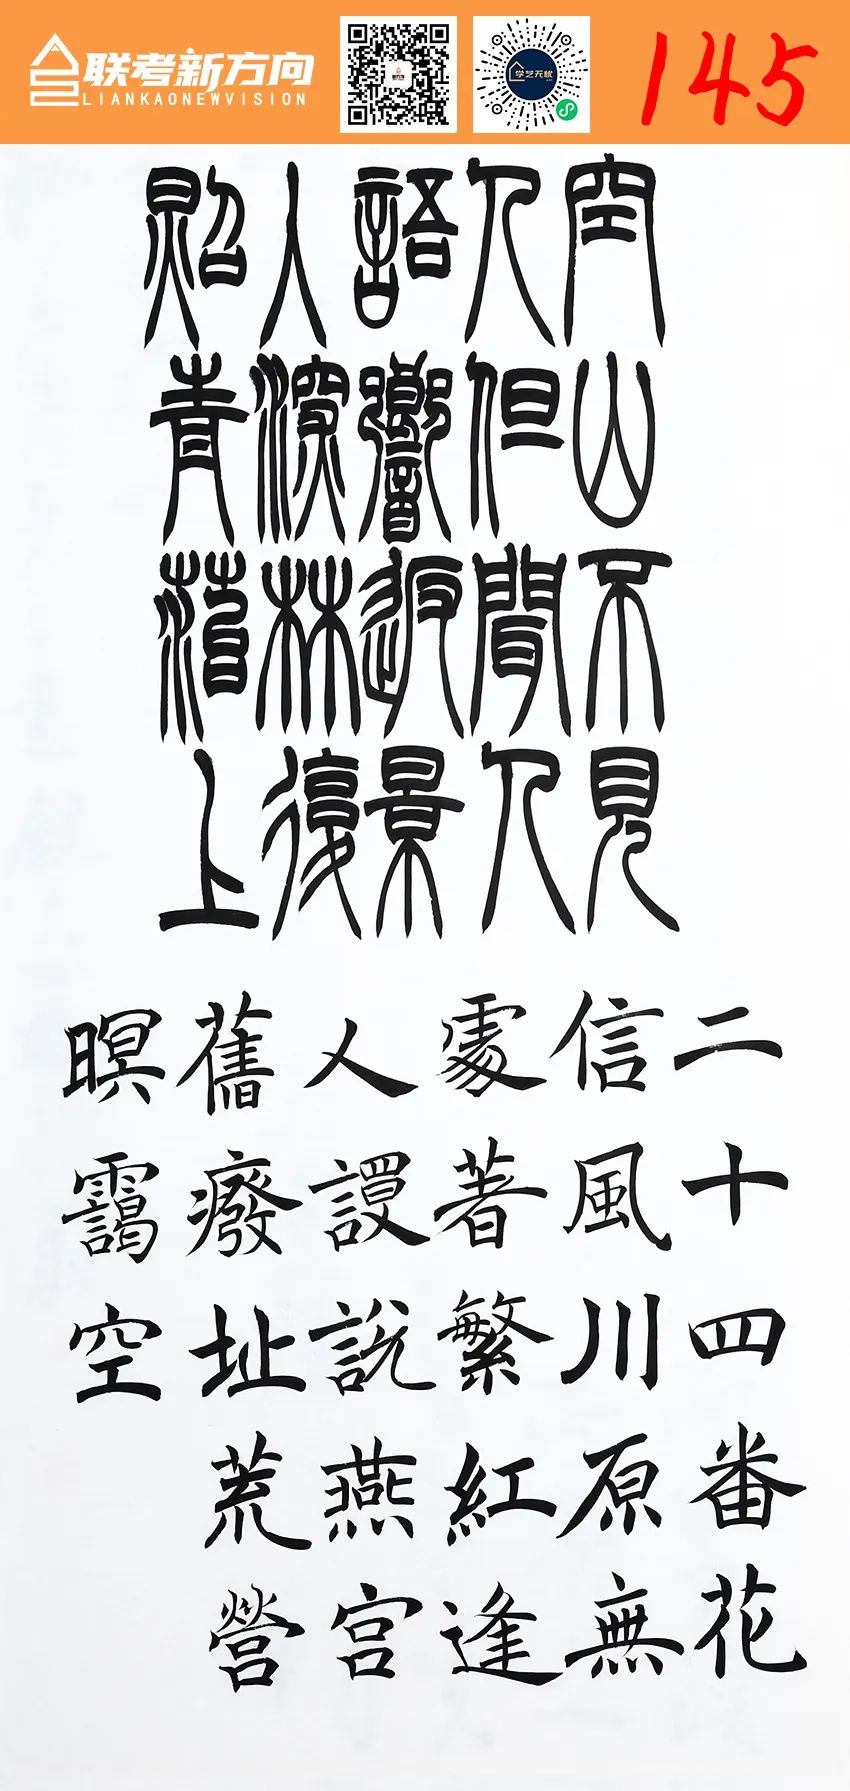 联考新方向
LIANKAONEWVISION
学艺无忧
145
空山不見
人但聞人
語響返景
入深林復
照青菭上
二十四番花
信風川原無
處著繁紅逢
人謾說燕宫
舊廢址荒營
暝靄空